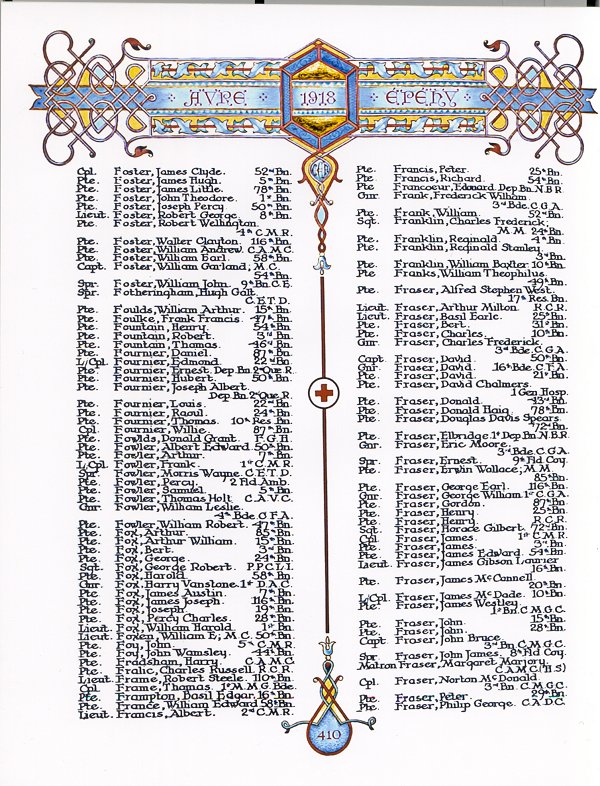 AVRE 1918 ÉPÉHY
Cpl. Foster, James Clyde. 52nd Bn.
Pte. Foster, James Hugh. 5th Bn.
Pte. Foster, James Little. 78th Bn.
Pte. Foster, John Theodore. 1st Bn.
Pte. Foster, Joseph Percy 50th Bn.
Lieut. Foster, Robert George. 8th Bn.
Pte. Foster, Robert Wellington
4th C.M.R.
Pte. Foster, Walter Clayton. 116th Bn.
Pte. Foster, William Andrew. C.A.M.C.
Pte. Foster, William Earl. 58th Bn.
Capt. Foster, William Garland; M.C.
54th Bn.
Spr. Foster, William John. 9th Bn. C.E.
Spr. Fotheringham, Hugh Galt
C.E.T.D.
Pte. Foulds, William Arthur. 15th Bn.
Pte. Foulke, Frank Francis. 47th Bn.
Pte. Fountain, Henry. 54th Bn.
Pte. Fountain, Robert. 3rd Bn.
Pte. Fountain, Thomas. 46th Bn.
Pte. Fournier, Daniel. 87th Bn.
L/Cpl. Fournier, Edmond. 22nd Bn.
Pte. Fournier, Ernest. Dep Bn 2nd Que R.
Pte. Fournier, Hubert. 50th Bn.
Pte. Fournier, Joseph Albert
Dep Bn. 2nd Que. R.
Pte. Fournier, Louis. 22nd Bn.
Pte. Fournier, Raoul. 24th Bn.
Pte. Fournier, Thomas. 10th Res. Bn.
Cpl. Fournier, Willie. 87th Bn.
Pte. Fowlds, Donald Grant. F.G.H.
Pte. Fowler, Albert Edward 50th Bn.
Pte. Fowler, Arthur. 7th Bn.
L/Cpl. Fowler, Frank. 1st C.M.R.
Spr. Fowler, Morris Wayne. C.E.T.D.
Pte. Fowler, Percy. 2 Fld Amb.
Pte. Fowler, Samuel. 5th Bn.
Pte. Fowler, Thomas Holt C.A.V.C.
Gnr. Fowler, William Leslie.
4th Bde C.F.A.
Pte. Fowler, William Robert. 47th Bn.
Pte. Fox, Arthur. 85th Bn.
Pte. Fox, Arthur William. 15th Bn.
Pte. Fox, Bert. 3rd Bn.
Pte. Fox, George. 24th Bn.
Sgt. Fox, George Robert. P.P.C.L.I.
Pte. Fox, Harold. 58th Bn.
Gnr. Fox, Harry Vanstone. 1st D.A.C.
Pte. Fox, James Austin. 7th Bn.
Pte. Fox, James Joseph. 116th Bn.
Pte. Fox, Joseph. 19th Bn.
Pte. Fox, Percy Charles. 28th Bn.
Lieut. Fox, William Harold. 1st Bn.
Lieut. Foxen, William E; M.C. 50th Bn.
Pte. Foy, John. 5th C.M.R.
Pte. Foy, John Wamsley. 44th Bn.
Pte. Fradsham, Harry. C.A.M.C.
Pte. Fralic, Charles Russell. R.C.R.
Lieut. Frame, Robert Steele. 110th Bn.
Cpl. Frame, Thomas. 1st M.M.G. Bde.
Pte. Frampton, Basil Edgar. 16th Bn.
Pte. France, William Edward 58th Bn.
Lieut. Francis, Albert. 2nd C.M.R.
Pte. Francis, Peter. 25th Bn.
Pte. Francis, Richard. 54th Bn.
Pte. Francoeur, Edouard. Dep Bn. N.B.R
Gnr. Frank, Frederick William
3rd Bde. C.G.A.
Pte. Frank, William. 52nd Bn.
Sgt. Franklin, Charles Frederick.
M.M. 24th Bn.
Pte. Franklin, Reginald. 4th Bn.
Pte. Franklin, Reginald Stanley.
3rd Bn.
Pte. Franklin, William Baxter. 10th Bn.
Pte Franks, William Theophilus.
49th Bn.
Pte. Fraser, Alfred Stephen West.
17th Res. Bn.
Lieut. Fraser, Arthur Milton. R.C.R.
Lieut. Fraser, Basil Earle. 25th Bn.
Pte. Fraser, Bert. 31st Bn.
Pte. Fraser, Charles. 10th Bn.
Gnr. Fraser, Charles Frederick.
3rd Bde. C.G.A.
Capt. Fraser, David. 50th Bn.
Gnr. Fraser, David. 16th Bde C.F.A.
Pte. Fraser, David. 21st Bn.
Pte. Fraser, David Chalmers.
1 Gen Hosp.
Pte. Fraser, Donald. 43rd Bn.
Pte. Fraser, Donald Haig. 78th Bn.
Pte. Fraser, Douglas Davis Spears
72nd Bn.
Pte. Fraser, Elbridge. 1st Dep. Bn. N.B.R.
Gnr. Fraser, Eric Moore.
3rd Bde. C.G.A.
Spr. Fraser, Ernest. 9th Fld Coy.
Pte. Fraser, Erwin Wallace; M.M.
85th Bn.
Pte. Fraser, George Earl. 116th Bn.
Gnr. Fraser, George William 1st C.G.A.
Pte. Fraser, Gordon. 87th Bn.
Pte. Fraser, Henry. 25th Bn.
Pte. Fraser, Henry. R.C.R.
Sgt. Fraser, Horace Gilbert. 72nd Bn.
Cpl. Fraser, James. 1st C.M.R.
Pte. Fraser, James. 3rd Bn.
Pte. Fraser, James Edward. 54th Bn.
Lieut. Fraser, James Gibson Laurier
16th Bn.
Pte. Fraser, James McConnell
20th Bn.
L/Cpl. Fraser, James McDade. 10th Bn.
Pte. Fraser, James Westley.
1st Bn. C.M.G.C.
Pte. Fraser, John. 15th Bn.
Pte. Fraser, John. 28th Bn.
Capt. Fraser, John Bruce.
3rd Bn C.M.G.C.
Spr. Fraser, John James. 8th Fld Coy.
Matron Fraser, Margaret Marjory.
C.A.M.C. (H.S)
Cpl. Fraser, Norton McDonald
3rd Bn. C.M.G.C.
Pte. Fraser, Peter. 29th Bn.
Pte. Fraser, Philip George. C.A.D.C.
410